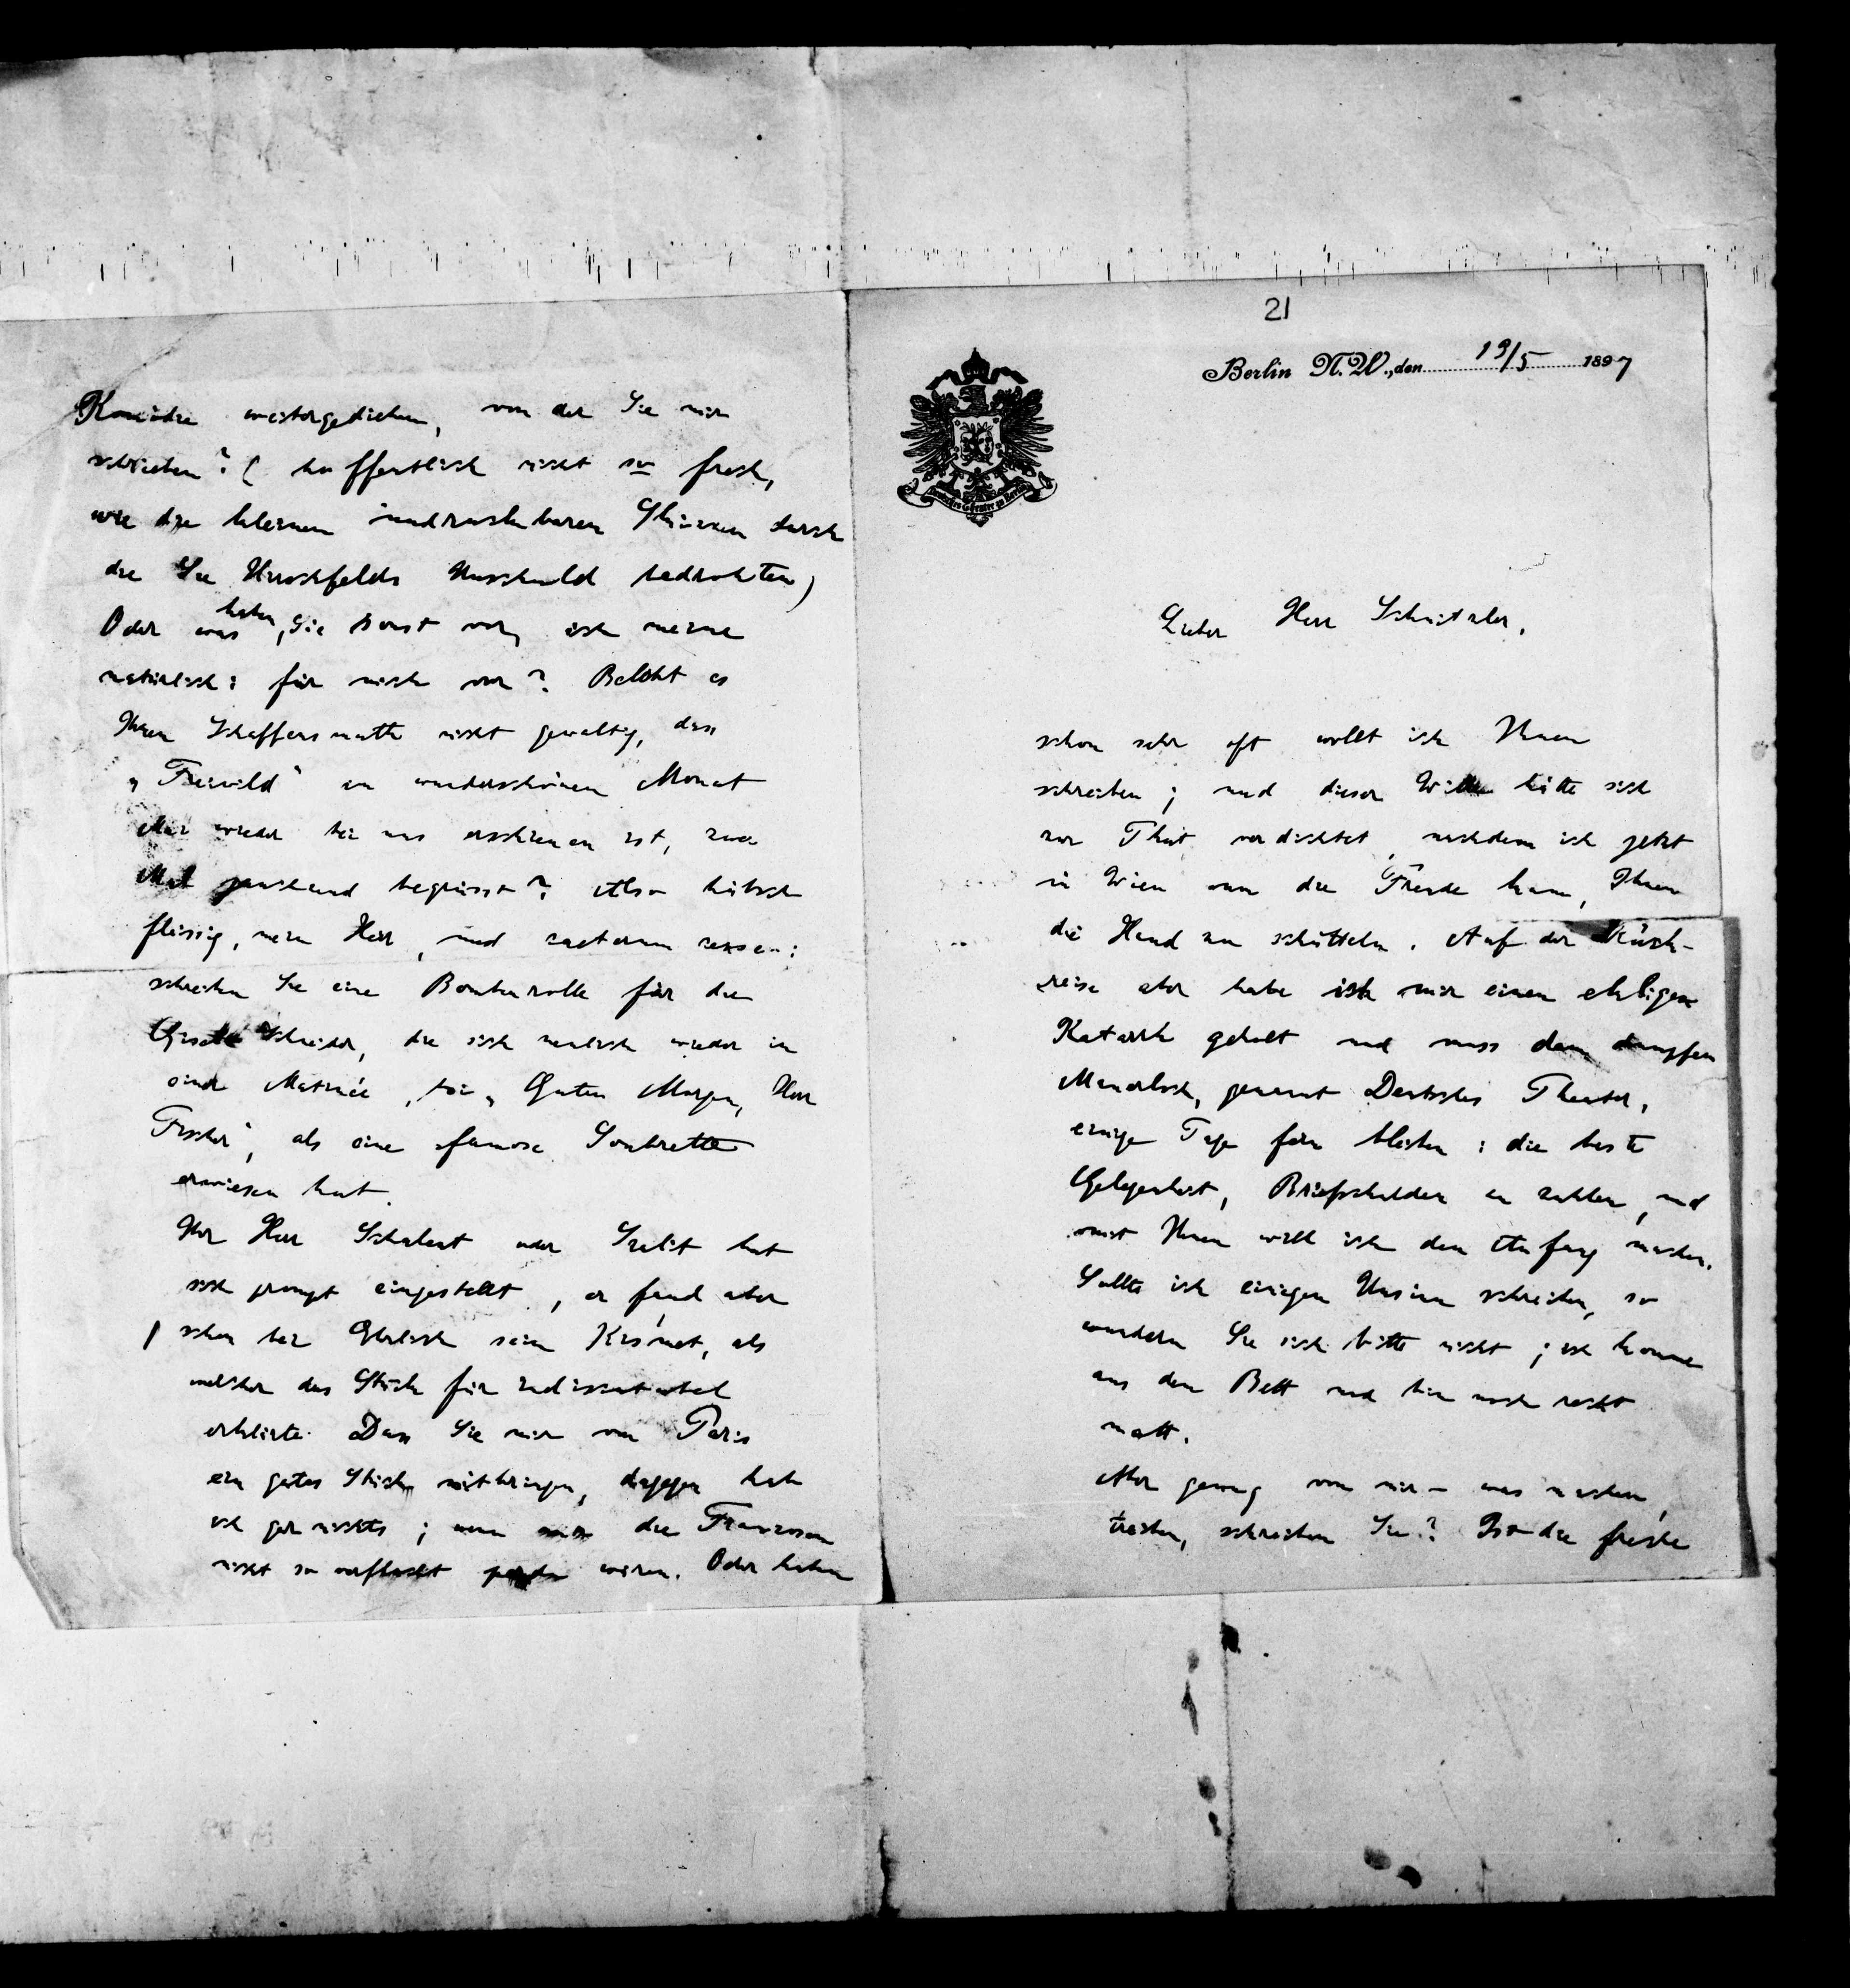 21
Berlin N.W., den 19/5 1897
Deutsches Theater zu Berlin
Lieber Herr Schnitzler,
schon sehr oft wollt ich Ihnen
schreiben; und dieser Wille hätte sich
zur That verdichtet, nachdem ich jetzt
in Wien um die Freude kam, Ihnen
die Hand zu schütteln. Auf der Rück-
reise aber habe ich mir einen ekligen
Katarrh geholt und muss dem dumpfen
Mauerloch, genannt Deutsches Theater,
einige Tage fern bleiben: die beste
Gelegenheit, Briefschulden zu zahlen, und
mit Ihnen will ich den Anfang machen.
Sollte ich einigen Unsinn schreiben, so
wundern Sie sich bitte nicht; ich komme
aus dem Bett und bin noch recht
matt.
Aber genug von mir – was machen,
treiben, schreiben Sie? Ist die freche
Komödie weitergediehen, von der Sie mir
schrieben? (hoffentlich nicht so frech,
wie die kleinen undruckbaren Skizzen durch
die Sie Hirschfelds Unschuld bedrohten)
Oder was haben Sie sonst vor, ich meine
natürlich: für mich vor? Belebt es
Ihren Schaffensmuth nicht gewaltig, dass
„Freiwild“ im wunderschönen Monat
Mai wieder bei uns erschienen ist, zwei
Mal jauchzend begrüsst? Also hübsch
fleissig, mein Herr, und caeterum censeo:
schreiben Sie eine Bombenrolle für die
Gisela Schneider, die sich neulich wieder in
einer Matinée, bei „Guten Morgen, Herr
Fischer“, als eine famose Soubrette
erwiesen hat.
Ihr Herr Schalent oder Szalit hat
sich prompt eingestellt, er fand aber
schon bei Ehrlich sein Kismet, als
welcher das Stück für indiscutabel
erklärte. Dass Sie mir von Paris
ein gutes Stück mitbringen, dagegen hab
ich gar nichts; wenn die Franzosen
nicht so verflucht wären. Oder haben